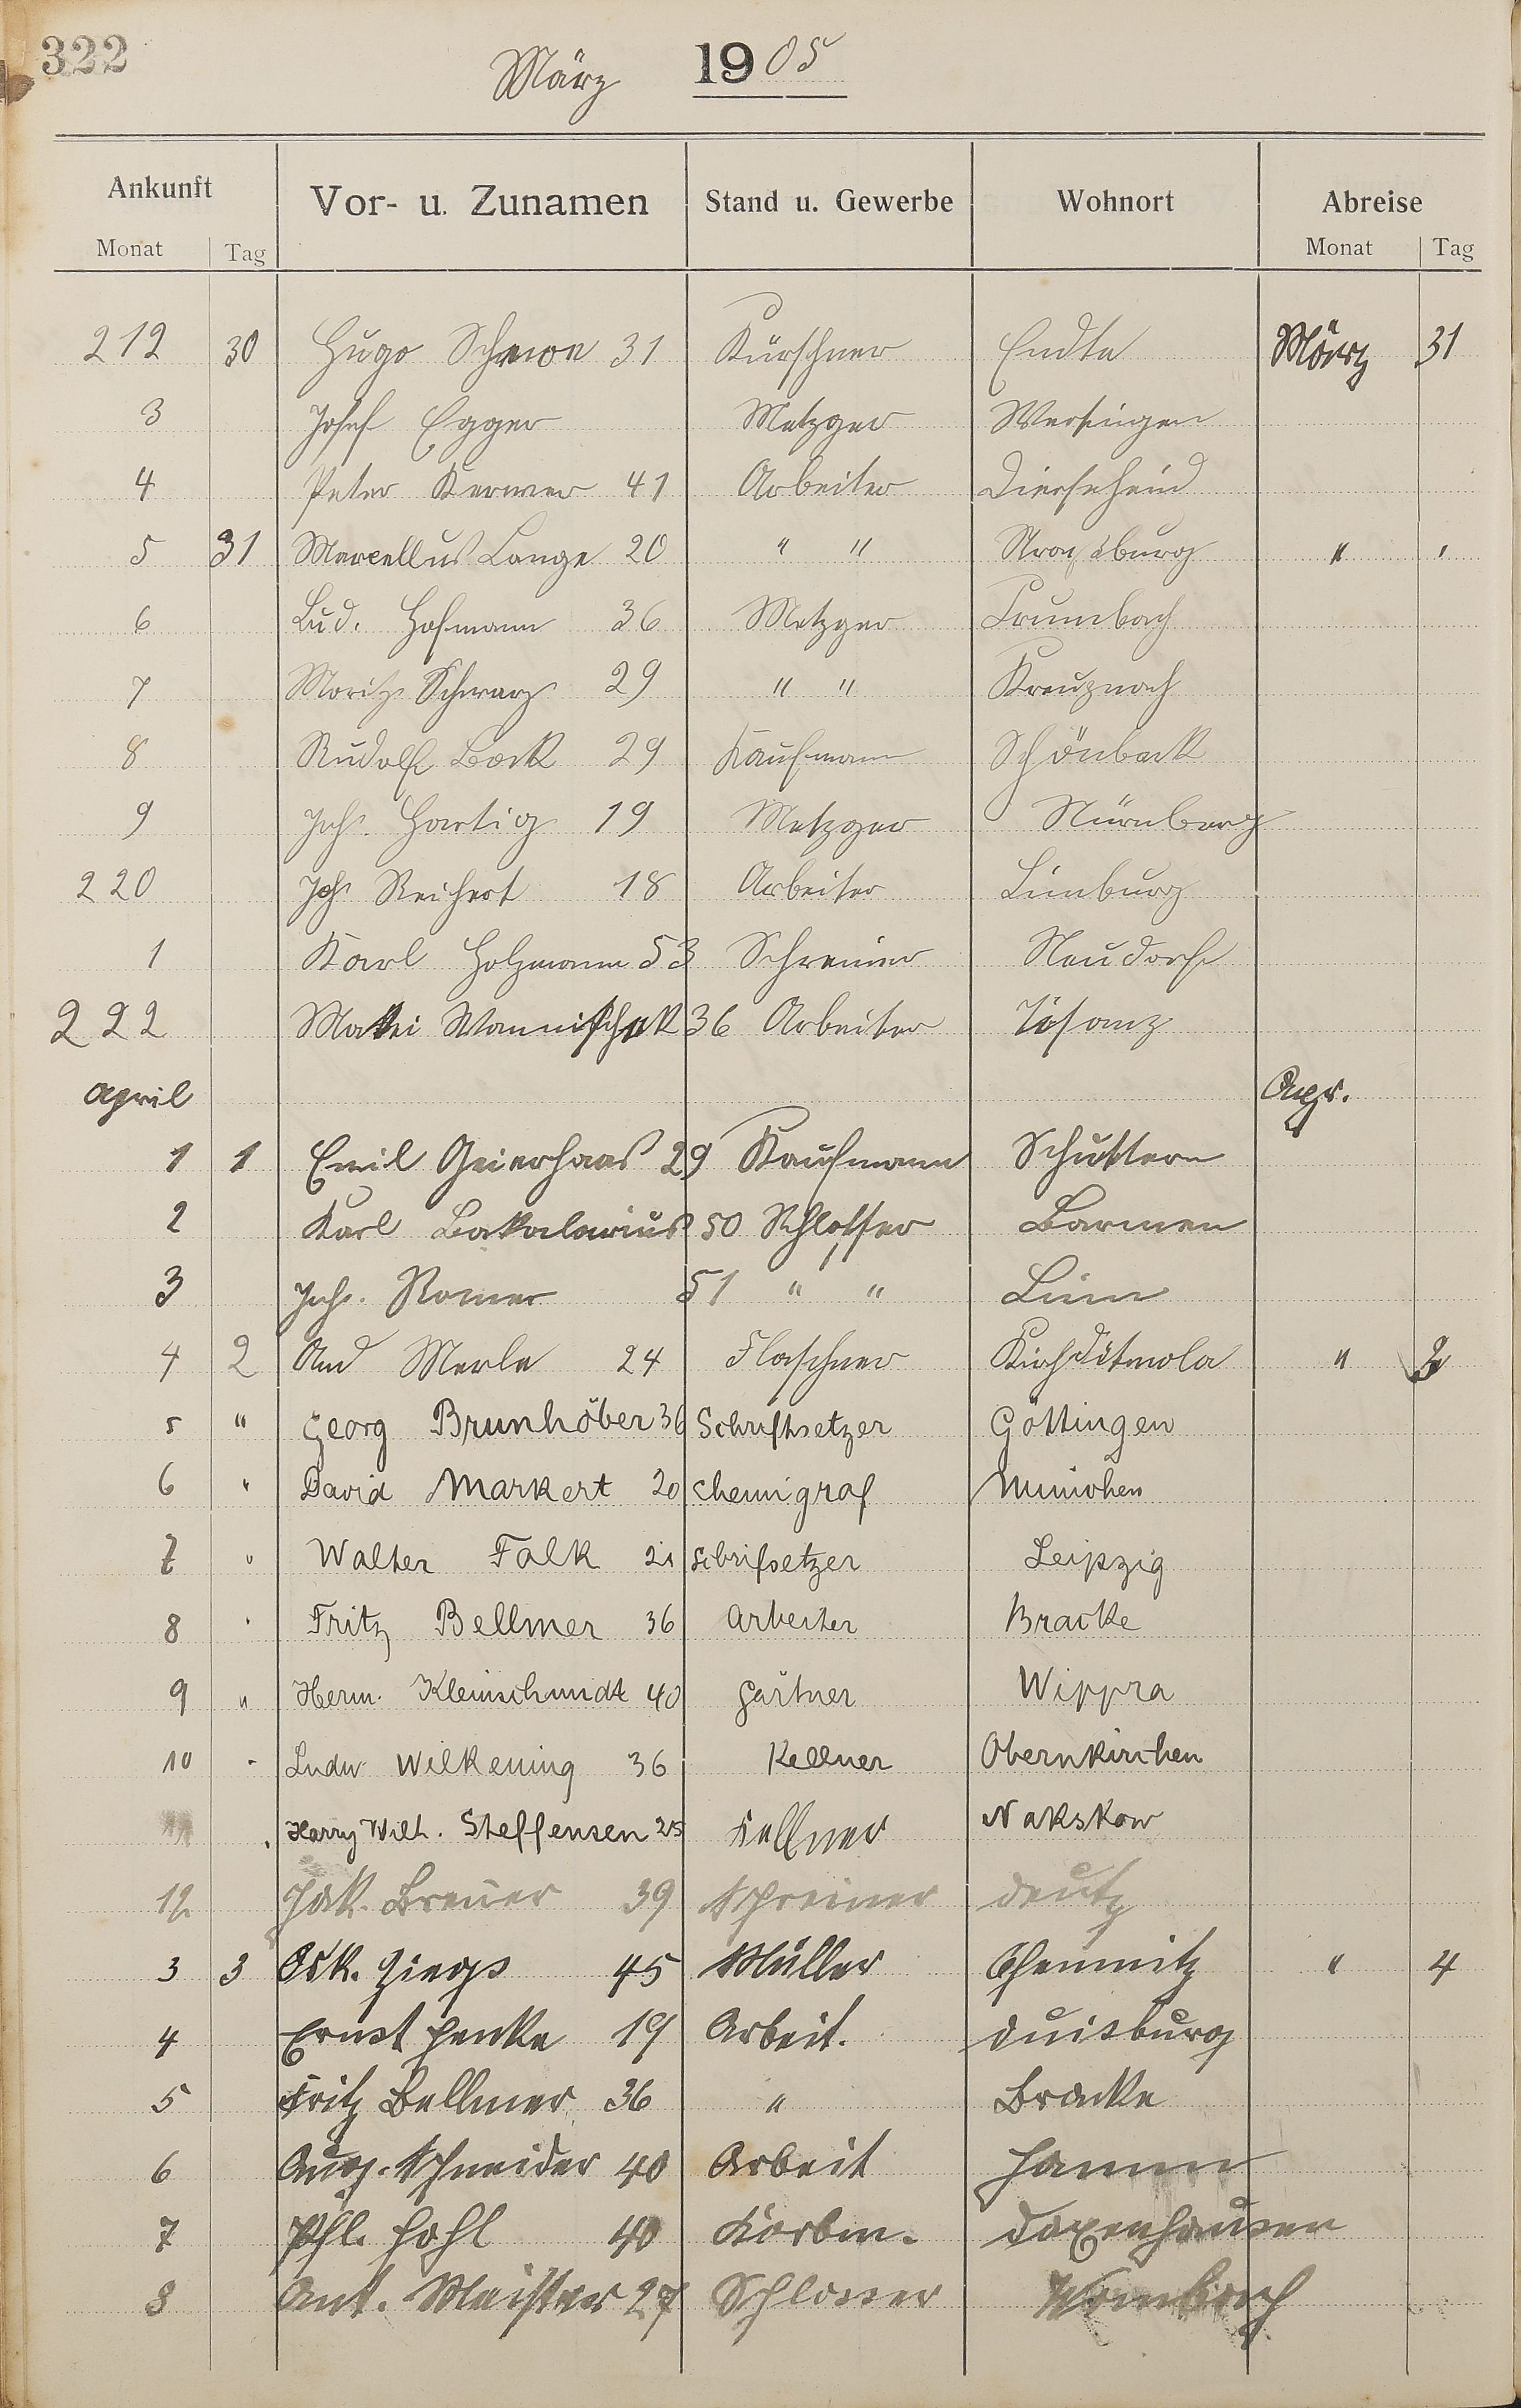 322
März 1905
Ankunft Vor- u. Zunamen Stand u. Gewerbe Wohnort Abreise
Monat Tag Monat Tag
212 30 Hugo 31 Kürschner März 31
3 Josef Egger Metzger Wersingen
4 Peter Kermer 41 Arbeiter Dierscheid
5 31 Marcellus Lange 20 " " Straßburg " "
6 Lud. Hofmann 36 Metzger Crumbach
7 Moritz Schwarz 29 " " Kreuznach
8 Rudolf Bock 29 Kaufmann Schönbeck
9 Joh. Hartig 19 Metzger Nürnberg
220 Joh. Reichert 18 Arbeiter Limburg
1 Karl Holzmann 53 Schreiner Neudorf
222 36 Arbeiter
April Apr.
1 1 Emil Geierhaas 29 Kaufmann Schuttern
2 Karl Bakalarius 50 Schlosser Barmen
3 Joh. Romer 51 " "
4 2 And Merle 24 Flaschner Kirchditmola " 2
5 " Georg Brunhöber 36 Schriftsetzer Göttingen
6 " David Markert 20 Chemigraf München
7 " Walter Falk 21 Schrifsetzer Leipzig
8 " Fritz Bellmer 36 Arbeiter Bracke
9 " Herm. Kleinschmidt 40 Gärtner Wippra
10 " Ludw Wilkening 36 Kellner Obernkirchen
Harry Wilh. Steffensen 25 Kellner Nakskow
12 Jak. Breuer 39 Schreiner Deutz
3 3 Osk. 45 Müller Chemnitz " 4
4 Ernst Henke 19 Arbeit. Duisburg
5 Fritz Bellmer 36 " Bracke
6 Aug. Schneider 40 Arbeit Hamm
7 Phl. Hohl 40 Korbm. Daxenhausen
8 Ant. Meister 27 Schlosser